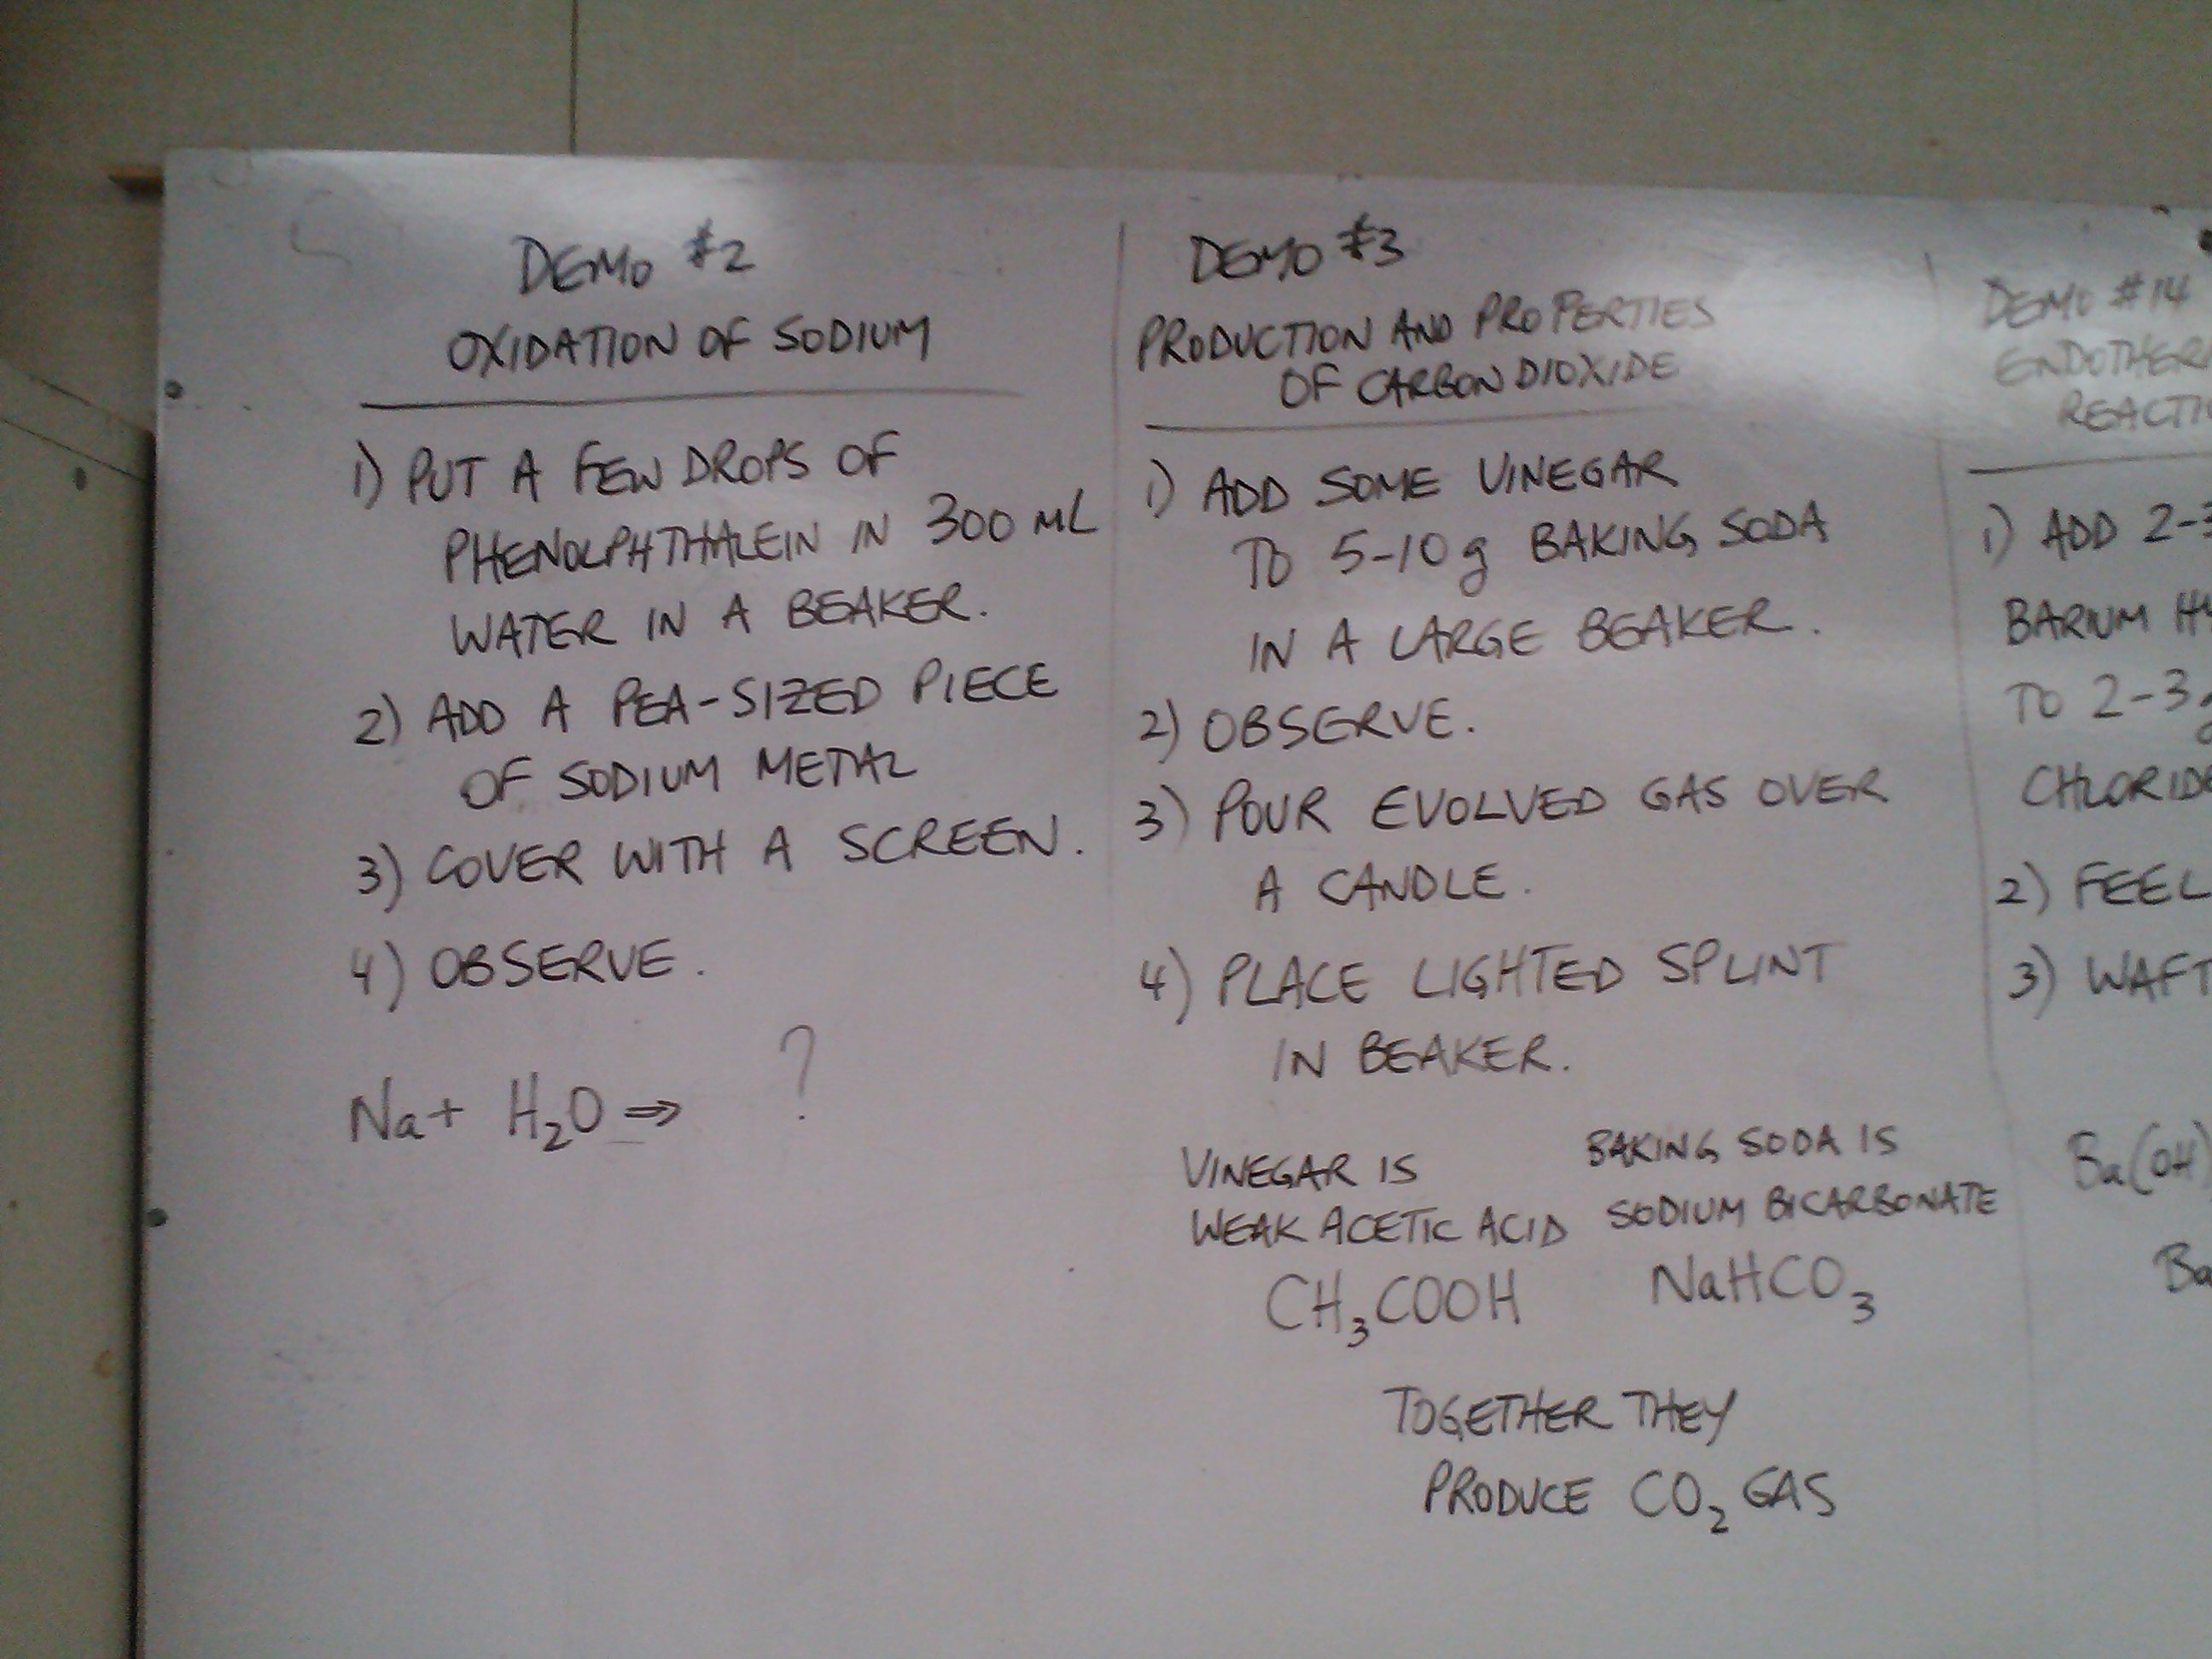 DEMO #2
OXIDATION OF SODIUM
1) PUT A FEW DROPS OF
PHENOLPHTHALEIN IN 300 mL
WATER IN A BEAKER.
2) ADD A PEA-SIZED PIECE
OF SODIUM METAL
3) COVER WITH A SCREEN.
4) OBSERVE.
Na + H₂O ⇒ ?
DEMO #3
PRODUCTION AND PROPERTIES
OF CARBON DIOXIDE
1) ADD SOME VINEGAR
TO 5-10 g BAKING SODA
IN A LARGE BEAKER.
2) OBSERVE.
3) POUR EVOLVED GAS OVER
A CANDLE.
4) PLACE LIGHTED SPLINT
IN BEAKER.
VINEGAR IS
WEAK ACETIC ACID
CH₃COOH
BAKING SODA IS
SODIUM BICARBONATE
NaHCO₃
TOGETHER THEY
PRODUCE CO₂ GAS
DEMO #14
ENDOTHER
REACTI
1) ADD 2-3
BARIUM HY
TO 2-3 g
CHLORIDE
2) FEEL
3) WAFT
Ba(OH)
Ba